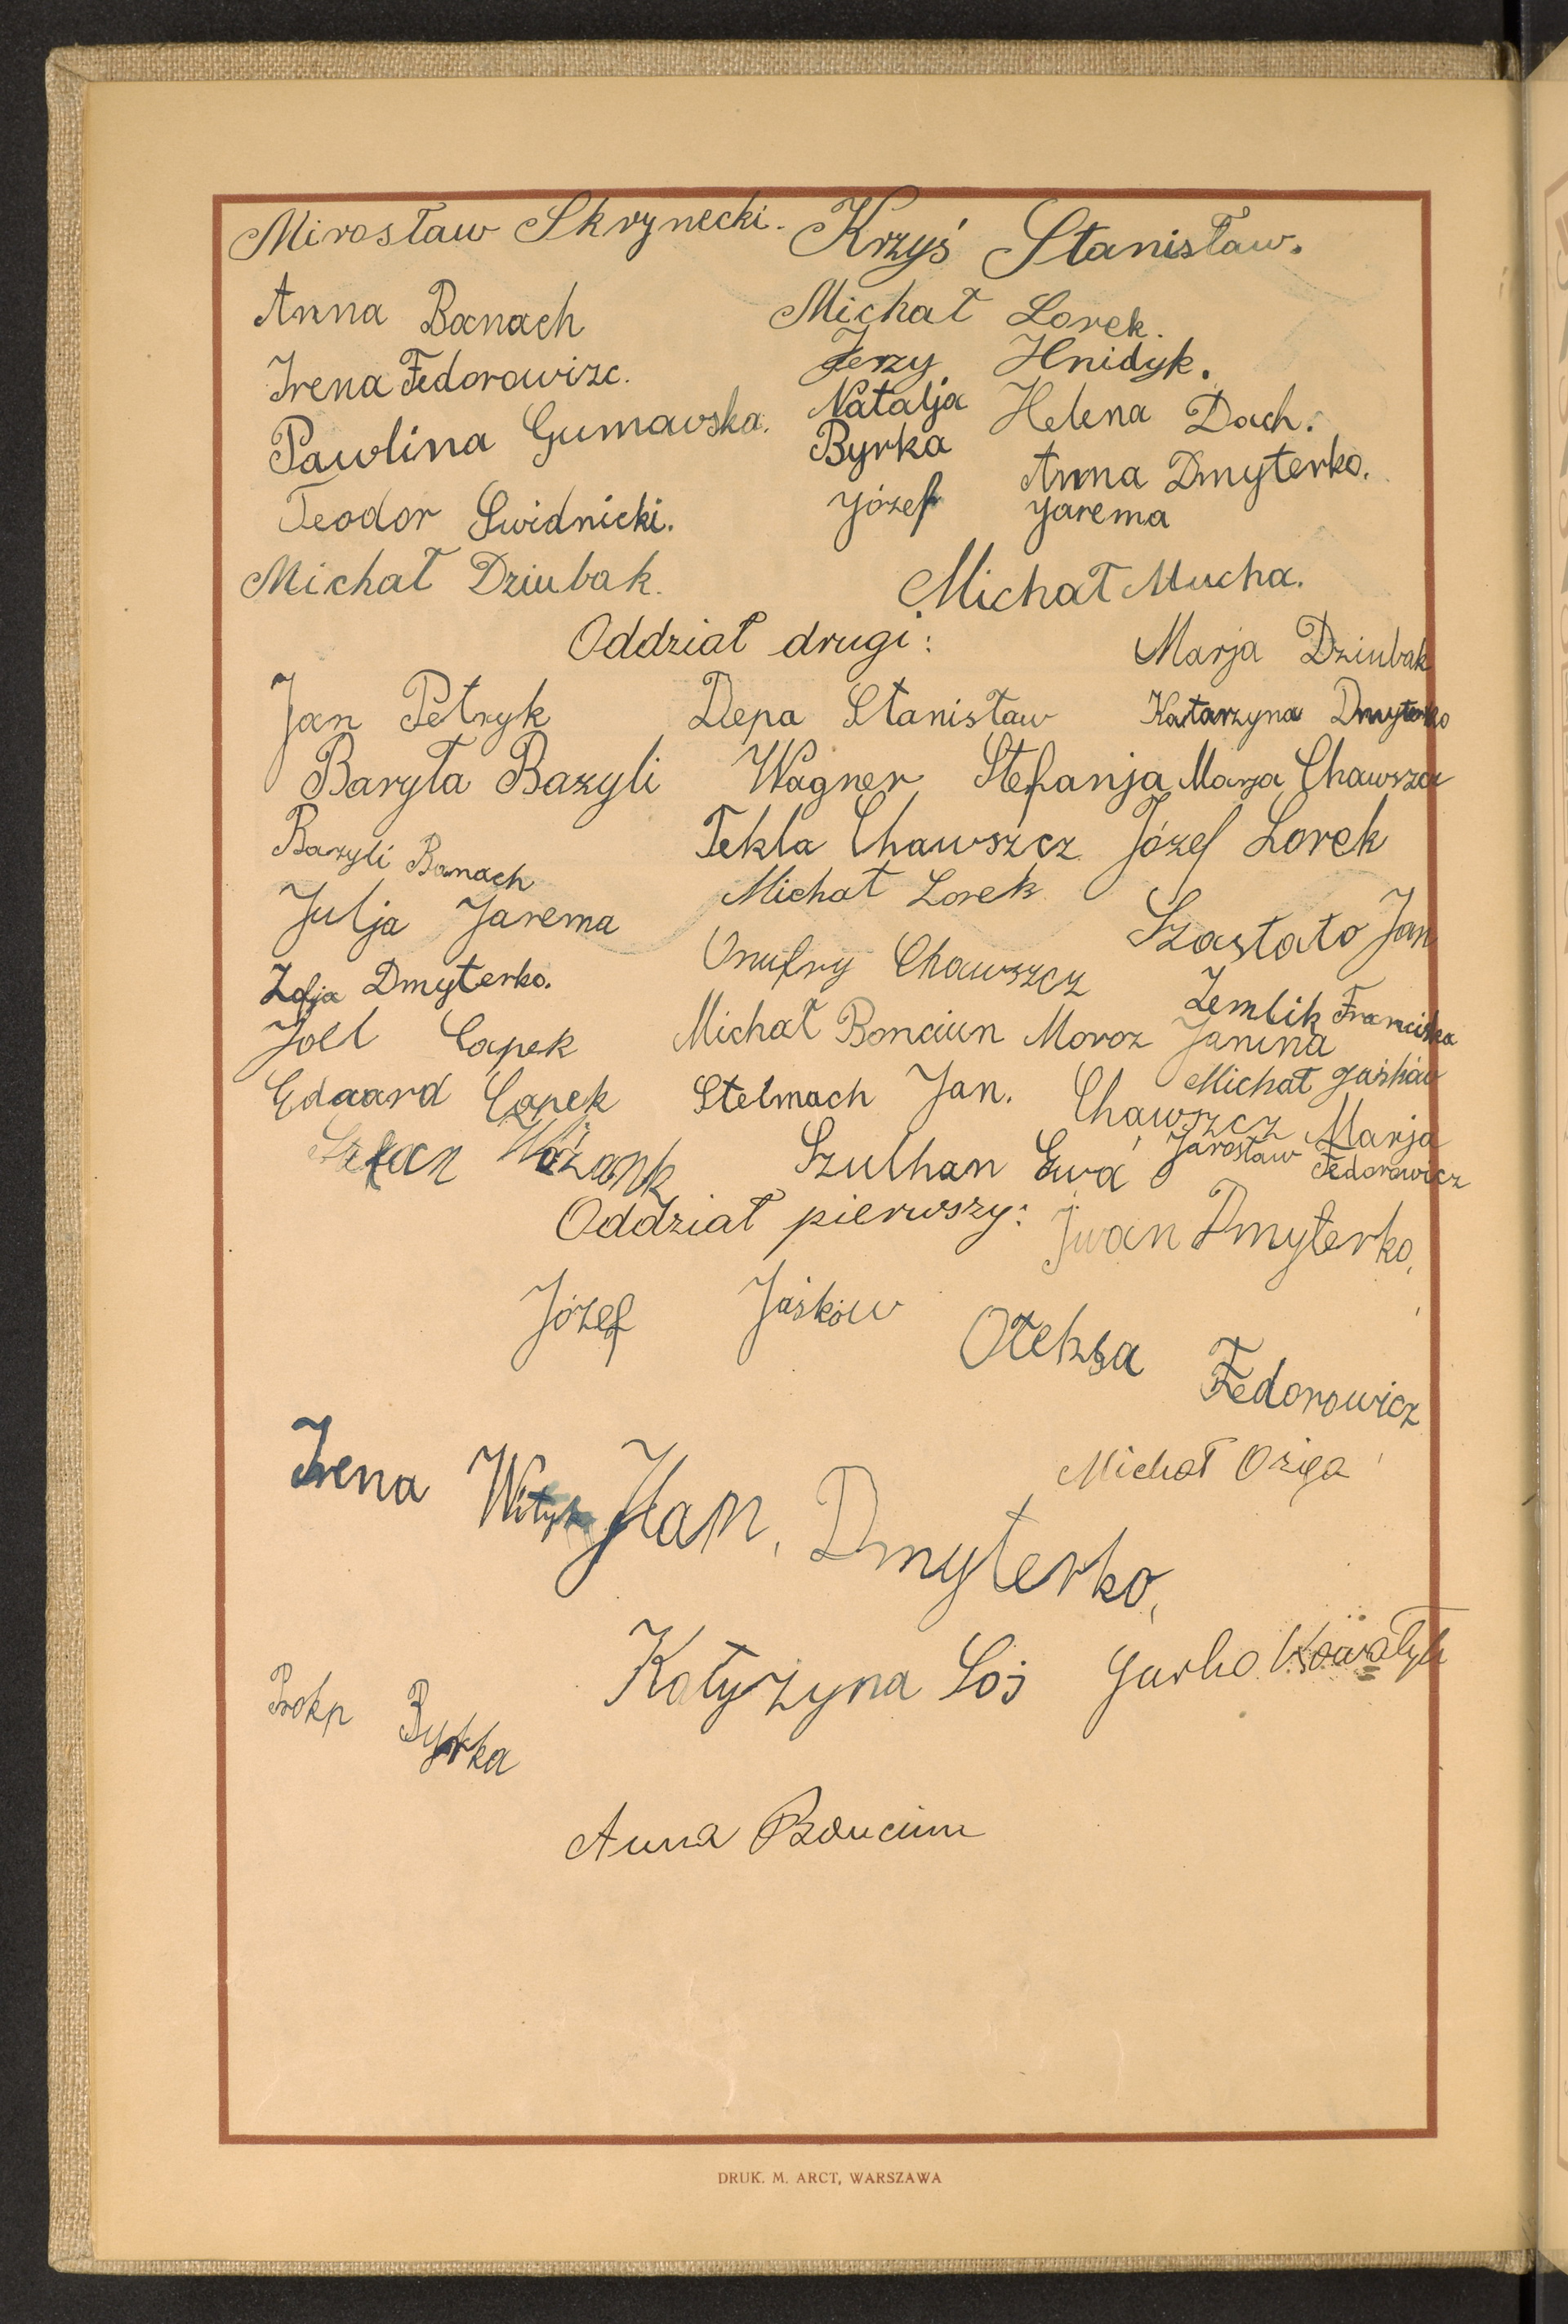 Mirosław Skrynecki. Krzyś Stanisław.
Anna Banach Michał Lorek.
Irena Fedorowizc. Jerzy Hnidyk.
Pawlina Gumawska. Natalja Byrka Helena Dach.
Anna Dmyterko.
Teodor Swidnicki. Józef Jarema
Michał Dziubak. Michał Mucha.
Oddział drugi: Marja Dziubak
Jan Petryk Depa Stanisław Katarzyna Dmyterko
Baryła Bazyli Wagner Stefanja Marja Chawszcz
Bazyli Banach Tekla Chawszcz Józef Lorek
Julja Jarema Michał Lorek Szastało Jan
Zofja Dmyterko. Onufry Chawszcz Zemlik Franciszka
Joel Capek Michał Bonciun Moroz Janina
Edward Capek Stelmach Jan. Michał Jaśków
Chawszcz Marja
Stefan Szulhan Ewa Jarosław Fedorowicz
Oddział pierwszy: Iwan Dmyterko,
Józef Jaśków Ołeksa Fedorowicz
Irena Wityk Michał Ożga
Ilan, Dmyterko,
Katyżyna Łoś Jurko Kowalyk
Prokp Byrka
Anna Bonciun
DRUK. M. ARCT, WARSZAWA